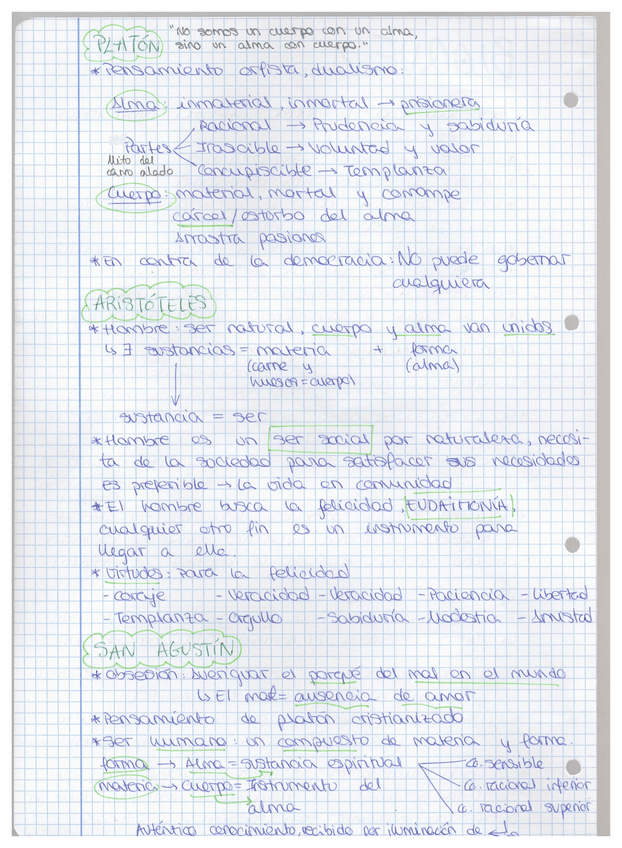 PLATÓN "No somos un cuerpo con un alma,
sino un alma con cuerpo."
* Pensamiento orfista, dualismo:
Alma: inmaterial, inmortal → prisionera
Racional → Prudencia y sabiduría
Partes Irascible → Voluntad y valor
Mito del
carro alado Concupiscible → Templanza
Cuerpo: material, mortal y corrompe
cárcel/estorbo del alma
Arrastra pasiones
* En contra de la democracia: No puede gobernar
cualquiera
ARISTÓTELES
* Hombre: ser natural, cuerpo y alma van unidos
↳ ∃ sustancias = materia + forma
(carne y (alma)
huesos = cuerpo)
sustancia = ser
* Hombre es un ser social por naturaleza, necesi-
ta de la sociedad para satisfacer sus necesidades
es preferible → la vida en comunidad
* El hombre busca la felicidad, EUDAIMONÍA,
cualquier otro fin es un instrumento para
llegar a ella.
* Virtudes: para la felicidad
- Coraje - Veracidad - Veracidad - Paciencia - Libertad
- Templanza - Orgullo - Sabiduría - Modestia - Amistad
SAN AGUSTÍN
* Obsesión: Averiguar el porqué del mal en el mundo
↳ El mal = ausencia de amor
* Pensamiento de platón cristianizado
* Ser humano: un compuesto de materia y forma.
forma → Alma = sustancia espiritual co. sensible
materia → Cuerpo = Instrumento del co. racional inferior
alma co. racional superior
Auténtico conocimiento, recibido por iluminación de